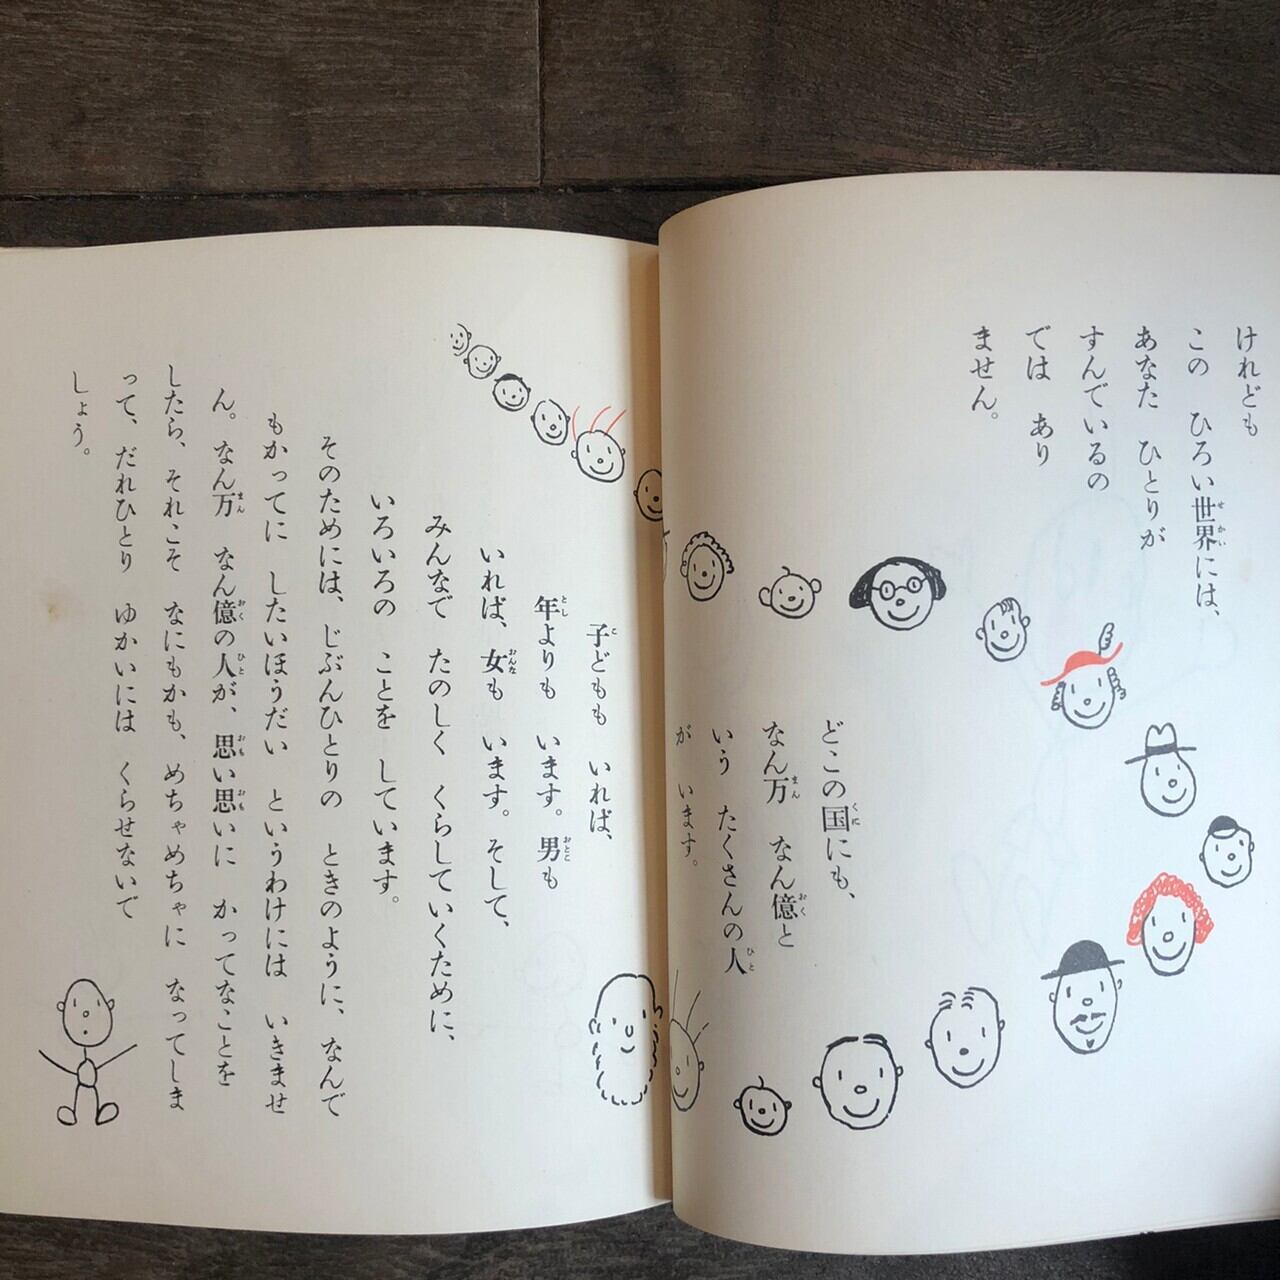 けれども
この ひろい世界には、
あなた ひとりが
すんでいるの
では あり
ません。
どこの国にも、
なん万 なん億と
いう たくさんの人
が います。
子どもも いれば、
年よりも います。男も
いれば、女も います。そして、
みんなで たのしく くらしていくために、
いろいろの ことを しています。
そのためには、じぶんひとりの ときのように、なんで
もかってに したいほうだい というわけには いきませ
ん。なん万 なん億の人が、思い思いに かってなことを
したら、それこそ なにもかも、めちゃめちゃに なってしま
って、だれひとり ゆかいには くらせないで
しょう。